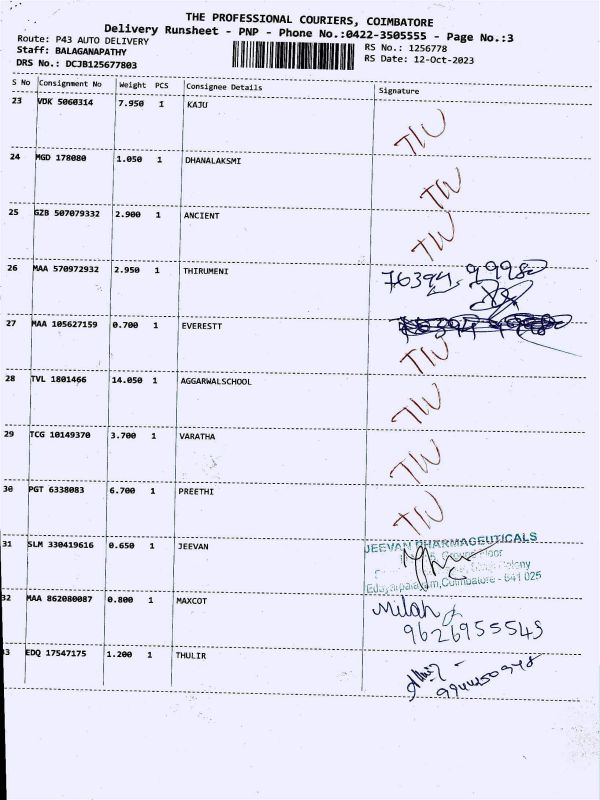 THE PROFESSIONAL COURIERS, COIMBATORE
Delivery Runsheet - PNP - Phone No.:0422-3505555 - Page No.:3
Route: P43 AUTO DELIVERY
RS No.: 1256778
Staff: BALAGANAPATHY
RS Date: 12-Oct-2023
DRS No.: DCJB125677803
S No Consignment No Weight PCS Consignee Details Signature
23 VDK 5060314 7.950 1 KAJU TIW
24 MGD 178080 1.050 1 DHANALAKSMI TIW
25 GZB 507079332 2.900 1 ANCIENT TIW
26 MAA 570972932 2.950 1 THIRUMENI
27 MAA 105627159 0.700 1 EVERESTT TIW
28 TVL 1801466 14.050 1 AGGARWALSCHOOL TIW
29 TCG 10149370 3.700 1 VARATHA TIW
30 PGT 6338083 6.700 1 PREETHI TIW
31 SLM 330419616 0.650 1 JEEVAN
JEEVAN PHARMACEUTICALS
Ground Floor
Colony
Edayarpalayam, Coimbatore - 641 025
32 MAA 862080087 0.800 1 MAXCOT Milah
9626955549
33 EDQ 17547175 1.200 1 THULIR